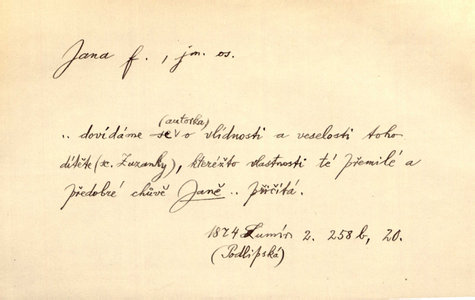 Jana f., jm. os.
(autorka)
.. dovídáme se o vlídnosti a veselosti toho
dítěte (r. Zuzanky), kteréžto vlastnosti té přemilé a
předobré chůvě Janě .. přičítá.
1874 Lumír 2. 258 b, 20.
(Podlipská)